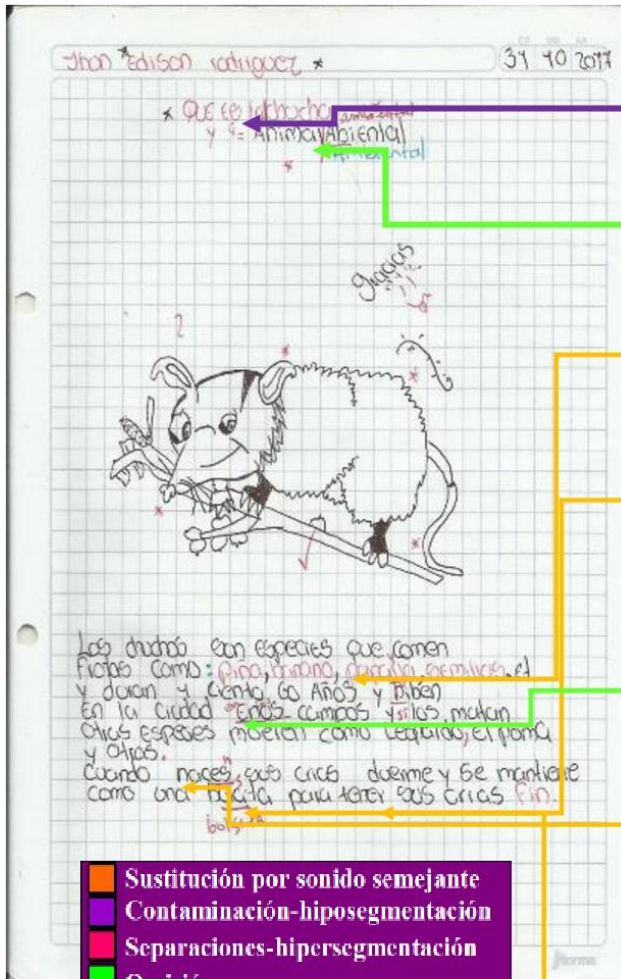 Jhon * Edison rodriguez *
31 10 2017
* Que es la chucha
ambiental
y q= Animal Abiental
Ambiental
*
gracias
?
Los chuchos son especies que comen
Frotas como: piña, banano, semillas, et
y duran y ciento 60 Años y biben
En la ciudad Enos campos y si las matan
Otras especies mueren como Leopardo, el poma
y otros.
Cuando naces sus crias duerme y se mantiene
como una para tener sus crias Fin.
Sustitución por sonido semejante
Contaminación-hiposegmentación
Separaciones-hipersegmentación
Norma